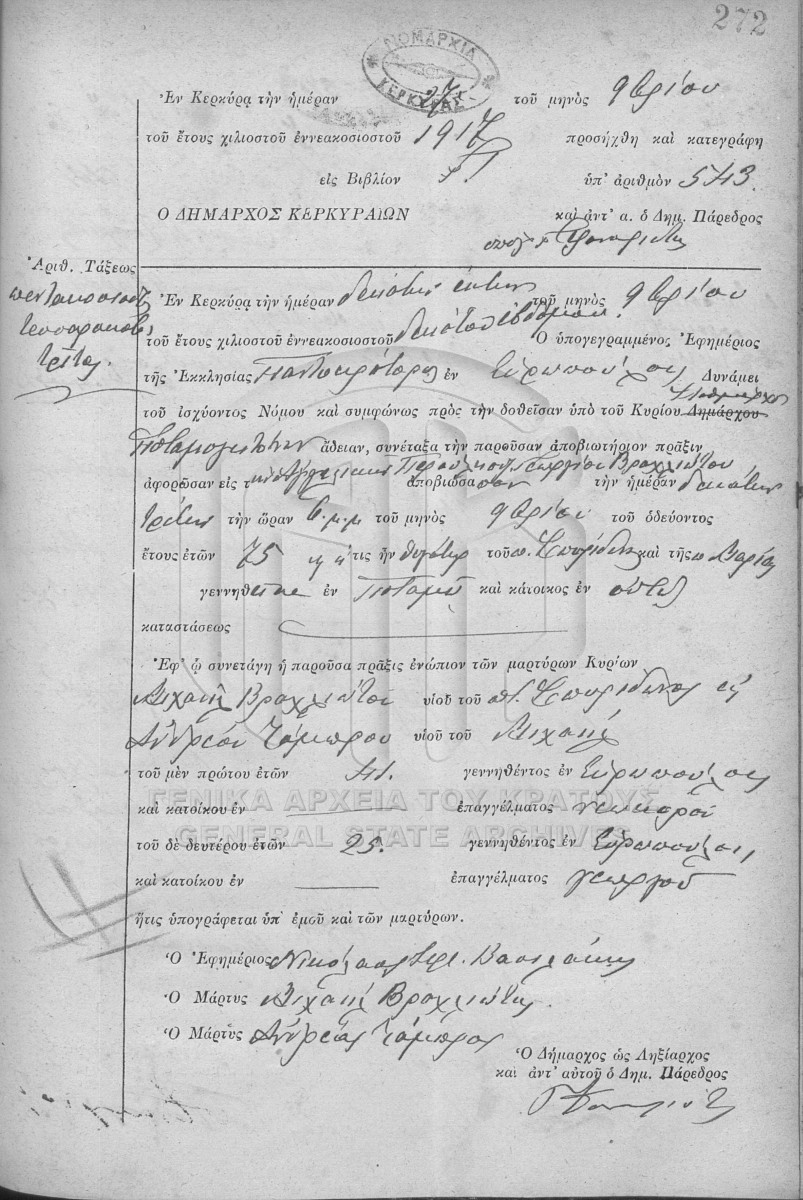 272
ΝΟΜΑΡΧΙΑ
ΚΕΡΚΥΡΑΣ
Ἐν Κερκύρᾳ τὴν ἡμέραν 27 τοῦ μηνὸς 9βρίου
τοῦ ἔτους χιλιοστοῦ ἐννεακοσιοστοῦ 1917 προσήχθη καὶ κατεγράφη
εἰς Βιβλίον ὑπ' ἀριθμὸν 543.
Ο ΔΗΜΑΡΧΟΣ ΚΕΡΚΥΡΑΙΩΝ καὶ ἀντ' α. ὁ Δημ. Πάρεδρος
Ἀριθ. Τάξεως
πεντακοσιοστὸς
τεσσαρακοστὸς
τρίτος.
Ἐν Κερκύρᾳ τὴν ἡμέραν δεκάτην ἕκτην τοῦ μηνὸς 9βρίου
τοῦ ἔτους χιλιοστοῦ ἐννεακοσιοστοῦ δεκάτου ἑβδόμου. Ὁ ὑπογεγραμμένος Ἐφημέριος
τῆς Ἐκκλησίας Παντοκράτορος ἐν Εὐρωπούλοις Δυνάμει
τοῦ ἰσχύοντος Νόμου καὶ συμφώνως πρὸς τὴν δοθεῖσαν ὑπὸ τοῦ Κυρίου Δημάρχου
Ποταμογειτόνων ἄδειαν, συνέταξα τὴν παροῦσαν ἀποβιωτήριον πρᾶξιν
ἀφορῶσαν εἰς τ Γεωργίου Βραχλιώτου ἀποβιώσασαν τὴν ἡμέραν δεκάτην
τρίτην τὴν ὥραν 6 μ.μ τοῦ μηνὸς 9βρίου τοῦ ὁδεύοντος
ἔτους ἐτῶν 75 ἥτις ἦν θυγάτηρ τοῦ π. Σπυρίδωνος καὶ τῆς π Μαρίας
γεννηθεῖσα ἐν Ποταμῷ καὶ κάτοικος ἐν
καταστάσεως
Ἐφ' ᾧ συνετάγη ἡ παροῦσα πρᾶξις ἐνώπιον τῶν μαρτύρων Κυρίων
Μιχαὴλ Βραχλιώτου υἱοῦ τοῦ π. Σπυρίδωνος καὶ
Ἀνδρέου Τόμπρου υἱοῦ τοῦ Μιχαήλ
τοῦ μὲν πρώτου ἐτῶν 41. γεννηθέντος ἐν Εὐρωπούλοις
καὶ κατοίκου ἐν ἐπαγγέλματος
τοῦ δὲ δευτέρου ἐτῶν 25. γεννηθέντος ἐν Εὐρωπούλοις
καὶ κατοίκου ἐν ἐπαγγέλματος γεωργοῦ
ἥτις ὑπογράφεται ὑπ' ἐμοῦ καὶ τῶν μαρτύρων.
Ὁ Ἐφημέριος Νικόλαος Βασιλάκης
Ὁ Μάρτυς Μιχαὴλ Βραχλιώτης.
Ὁ Μάρτυς Ἀνδρέας Τόμπρος
Ὁ Δήμαρχος ὡς Ληξίαρχος
καὶ ἀντ' αὐτοῦ ὁ Δημ. Πάρεδρος
ΓΕΝΙΚΑ ΑΡΧΕΙΑ ΤΟΥ ΚΡΑΤΟΥΣ
GENERAL STATE ARCHIVES